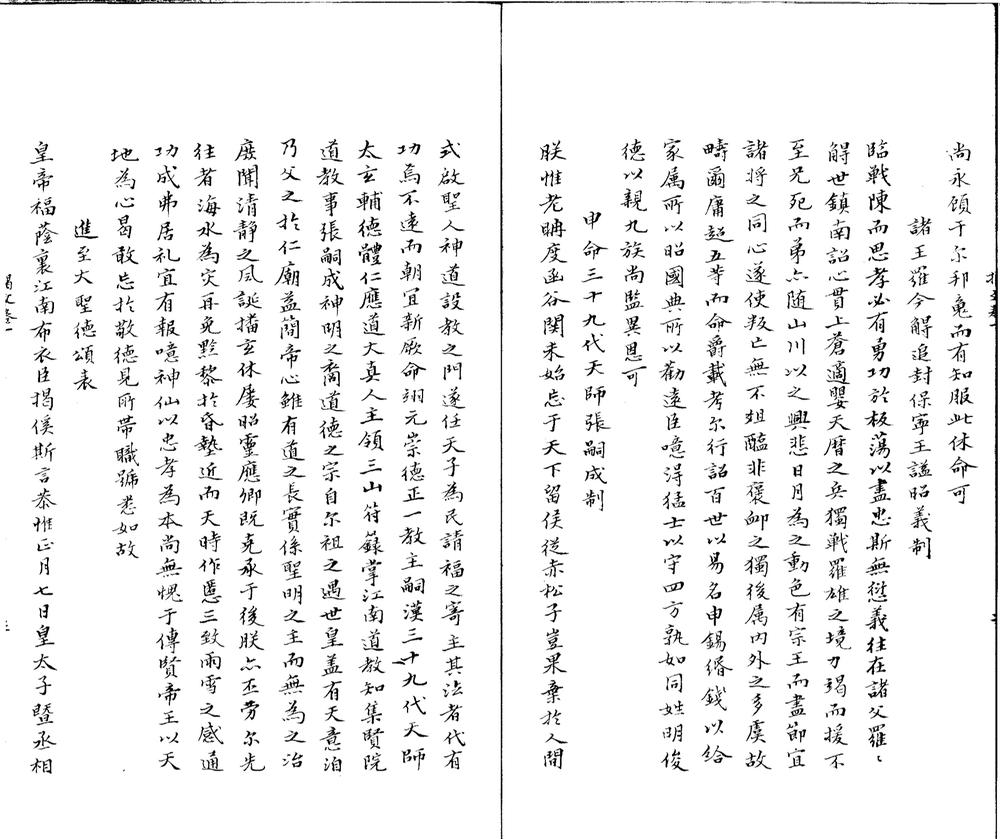 尚永頋于尔邦䰟而有知服此休命可
諸王羅令解追封保寧王謚昭義制
臨戰陳而思孝必有勇功於板蕩以盡忠斯無愆義往在諸父羅〻
解世鎮南詔心貫上蒼適嬰天曆之兵獨戰羅雄之境力竭而援不
至兄死而弟亦随山川以之興悲日月為之動色有宗王而盡節宜
諸將之同心遂使叛亡無不殂醢非褒卹之獨後属内外之多虞故
疇爾庸超五等而命爵載考尔行詔百世以易名申錫緡錢以給
家属所以昭國典所以勸遠臣噫得猛士以守四方孰如同姓明俊
德以親九族尚監異恩可
申命三十九代天師張嗣成制
朕惟老聃度函谷関未始忘于天下留侯従赤松子豈果棄於人間
式啟聖人神道設教之門遂任天子為民請福之寄主其法者代有
功焉不遠而朝宜新厥命翊元崇德正一教主嗣漢三十九代天師
太玄輔德體仁應道大真人主領三山符籙掌江南道教知集賢院
道教事張嗣成神明之裔道德之宗自尔祖之遇世皇盖有天意洎
乃父之於仁廟益簡帝心雖有道之長實係聖明之主而無為之治
庶開清静之風誕播玄休屢昭靈應卿既克承于後朕亦丕劳尔先
往者海水為灾再免黔黎於昏墊近而天時作慝三致雨雪之感通
功成弗居礼宜有報噫神仙以忠孝為本尚無愧于傳賢帝王以天
地為心曷敢忘於敬德見所帶職號悉如故
進至大聖德頌表
皇帝福蔭裏江南布衣臣揭傒斯言恭惟正月七日皇太子暨丞相